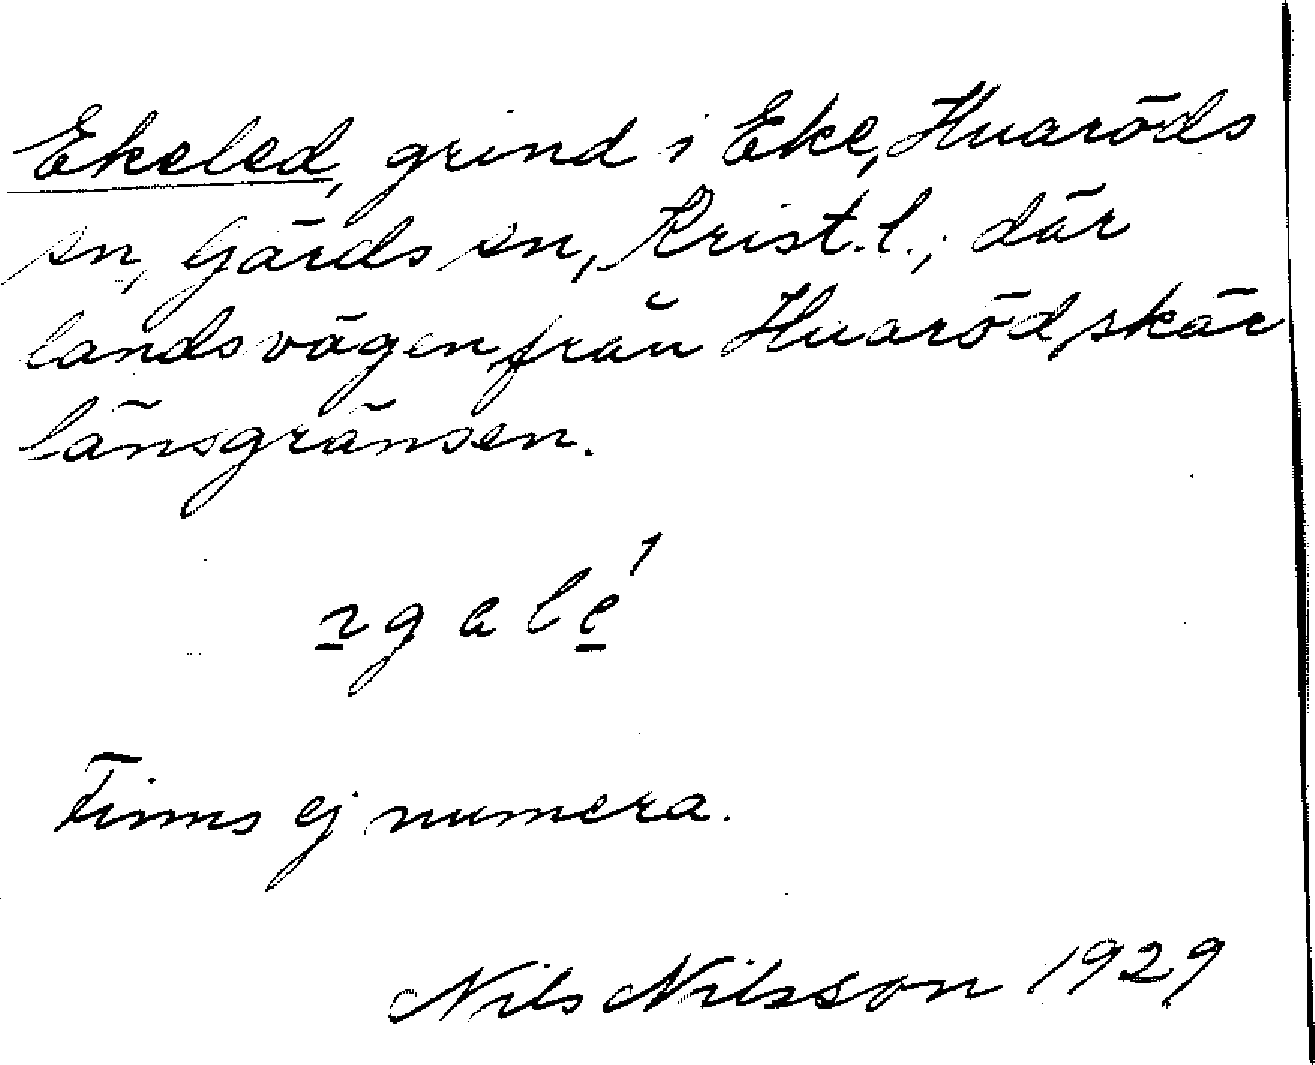 Ekeled, grind i Eke, Huaröds
sn, Gärds sn, Krist. l., där
landsvägen från Huaröd skär
länsgränsen.
Finns ej numera.
Nils Nilsson 1929